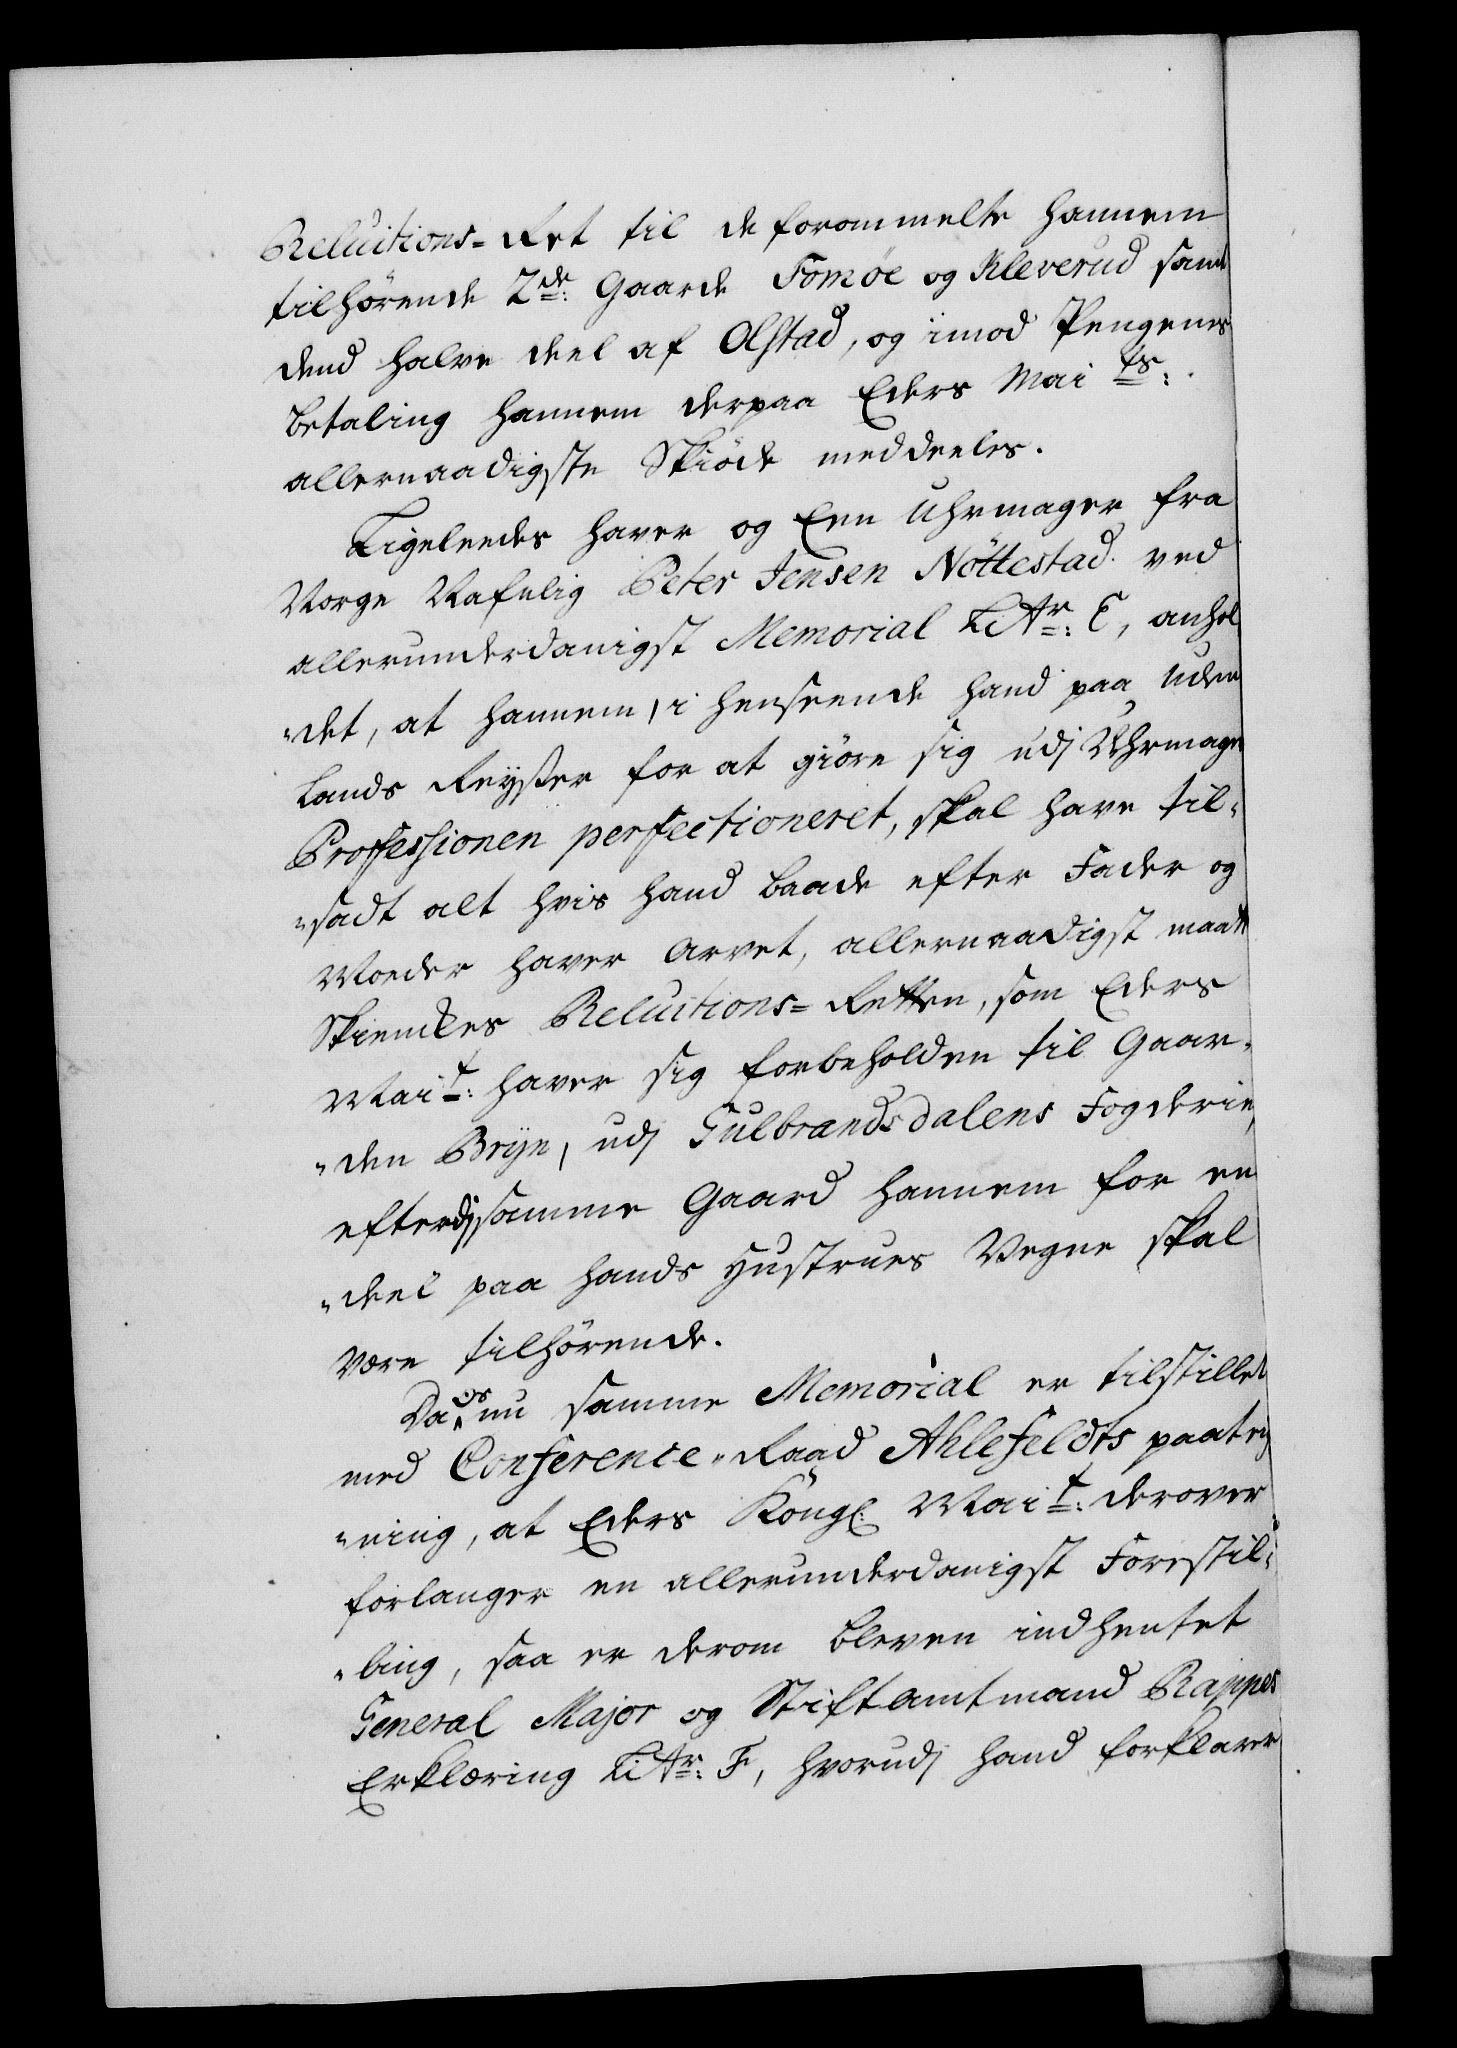 Reluitions-Ret til de forommelte hannem
tilhörende 2de: Gaarde Fomöe og Kleverud samt
dend halve deel af Olstad, og imod Pengenes
betaling hannem derpaa Eders Maits:
allernaadigste Skiöde meddeeles.
Ligeleedes haver og Een Uhrmager fra
Norge Nafnlig Peter Jensen Nöttestad ved
allerunderdanigst Memorial Litr: E, anhol
"det, at hannem, i henseende hand paa Uden
lands Reyser for at giöre sig udj Uhrmager
Professionen perfectioneret, skal have til-
"sadt alt hvis hand baade efter Fader og
Moder haver arvet, allernaadigst maatte
Skienckes Reluitions-Retten, som Eders
Mait: haver sig forbeholden til Gaar-
"den Brÿn, udj Gulbrandsdalens Fogderie,
efterdj samme Gaard hannem for en
"deel paa hands Hustrues Vegne skal
være tilhörende.
Da os nu samme Memorial er tilstillet
med Conference-Raad Ahlefeldts paateg
"ning, at Eders Kongl: Mait: derover
forlanger en allerunderdanigst Forestil-
"ling, saa er derom bleven indhentet
General Major og Stiftamtmand Rappes
Erklæring Litr: F, hvorudj hand forklarer